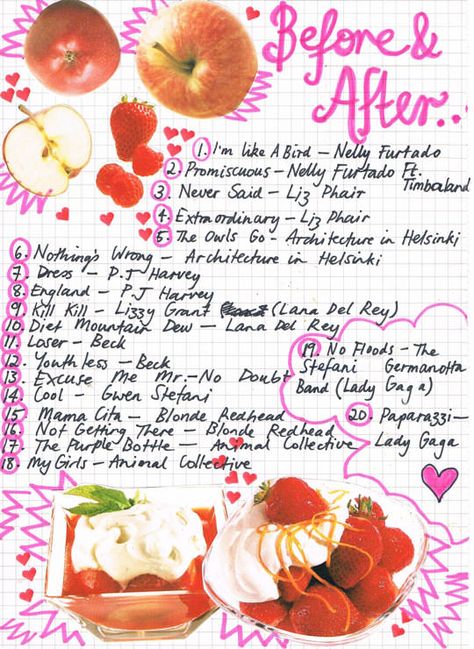 Before &
After..
1. I'm like A Bird – Nelly Furtado
2. Promiscuous – Nelly Furtado Ft.
Timbaland
3. Never Said – Liz Phair
4. Extraordinary – Liz Phair
5. The Owls Go – Architecture in Helsinki
6. Nothing's Wrong – Architecture in Helsinki
7. Dress – P.J Harvey
8. England – P.J Harvey
9. Kill Kill – Lizzy Grant (Lana Del Rey)
10. Diet Mountain Dew – Lana Del Rey
11. Loser – Beck
12. Youthless – Beck
13. Excuse Me Mr. – No Doubt
14. Cool – Gwen Stefani
15. Mama Cita – Blonde Redhead
16. Not Getting There – Blonde Redhead
17. The Purple Bottle – Animal Collective
18. My Girls – Animal Collective
19. No Floods – The
Stefani Germanotta
Band (Lady Gaga)
20. Paparazzi –
Lady Gaga